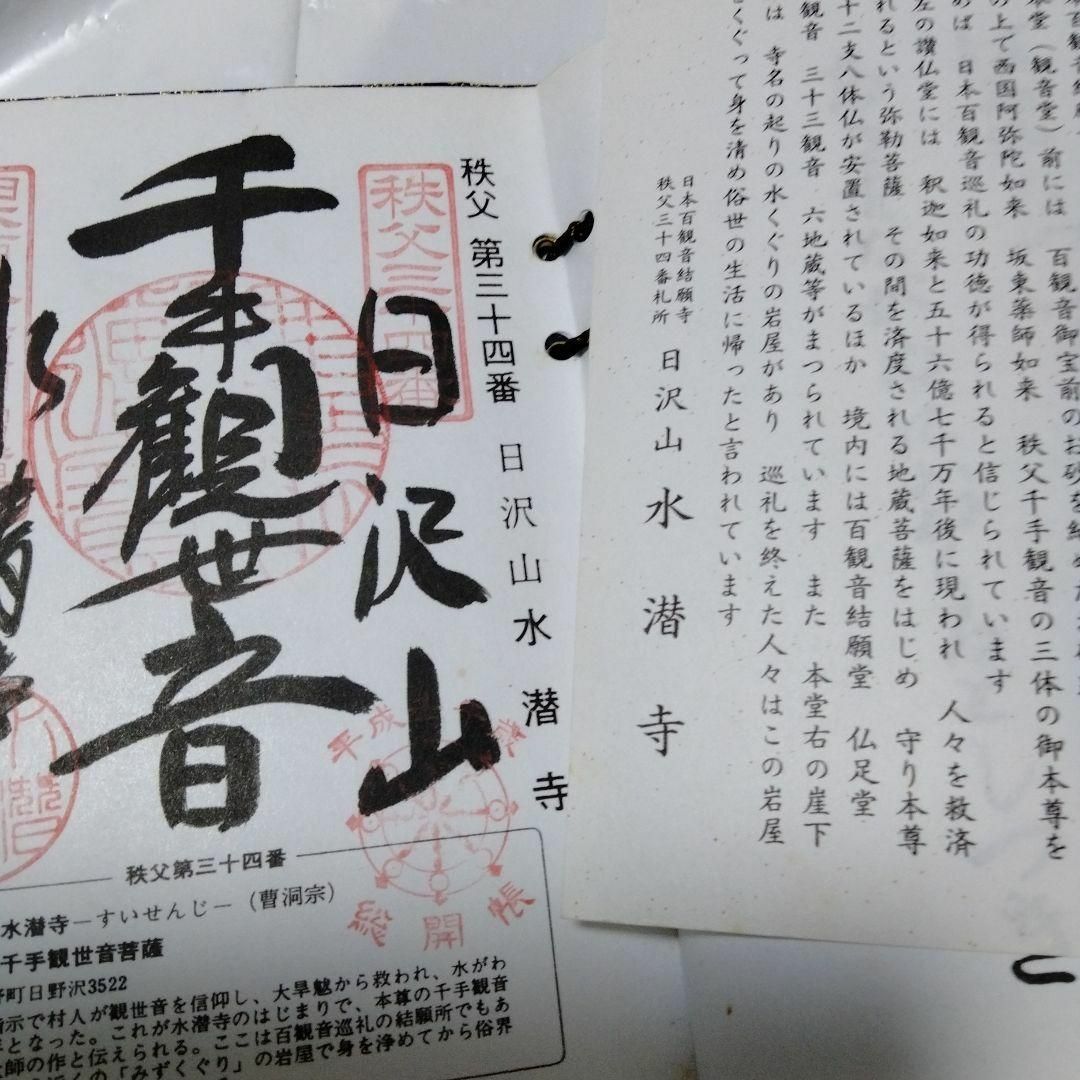 本百観音結願
本堂(観音堂)前には 百観音御宝前のお砂を納めた
の上で西国阿弥陀如来 坂東薬師如来 秩父千手観音の三体の御本尊を
めば 日本百観音巡礼の功徳が得られると信じられています
左の讃仏堂には 釈迦如来と五十六億七千万年後に現われ 人々を救済
れるという弥勒菩薩 その間を済度される地蔵菩薩をはじめ 守り本尊
十二支八体仏が安置されているほか 境内には百観音結願堂 仏足堂
観音 三十三観音 六地蔵等がまつられています また 本堂右の崖下
は 寺名の起りの水くぐりの岩屋があり 巡礼を終えた人々はこの岩屋
をくぐって身を清め俗世の生活に帰ったと言われています
日本百観音結願寺
秩父三十四番札所
日沢山 水潜寺
秩父 第三十四番 日沢山水潜寺
秩父三十四番
日沢山
千手観世音
水潜寺
平成
総開帳
秩父第三十四番
水潜寺―すいせんじ―(曹洞宗)
千手観世音菩薩
野町日野沢3522
指示で村人が観世音を信仰し、大旱魃から救われ、水がわ
年となった。これが水潜寺のはじまりで、本尊の千手観音
大師の作と伝えられる。ここは百観音巡礼の結願所でもあ
近くの「みずくぐり」の岩屋で身を浄めてから俗界